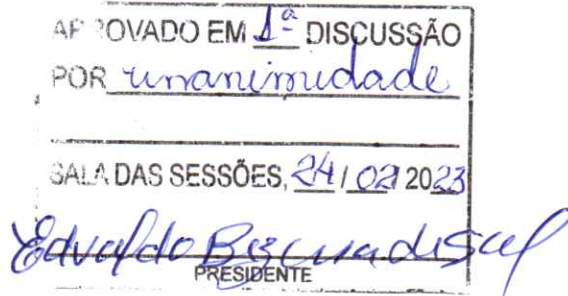 APROVADO EM 1ª DISCUSSÃO
POR unanimidade
SALA DAS SESSÕES, 24 / 02 / 2023
Edvaldo
PRESIDENTE